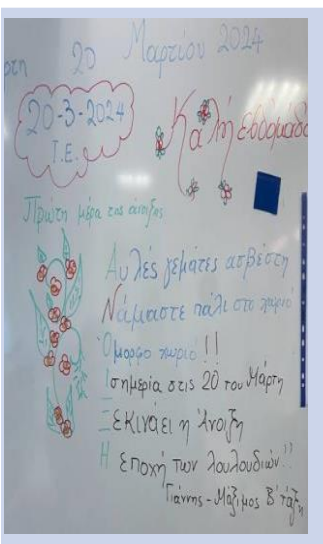 ρτη 20 Μαρτίου 2024
20-3-2024
Τ.Ε.
Καλή εβδομάδα
Πρώτη μέρα της άνοιξης
Αυλές γεμάτες ασβέστη
Νάμαστε πάλι στο χωριό
Όμορφο χωριό!!
Ισημερία στις 20 του Μάρτη
Ξεκινάει η Άνοιξη
Η εποχή των λουλουδιών!!
Γιάννης-Μάξιμος Β' τάξη